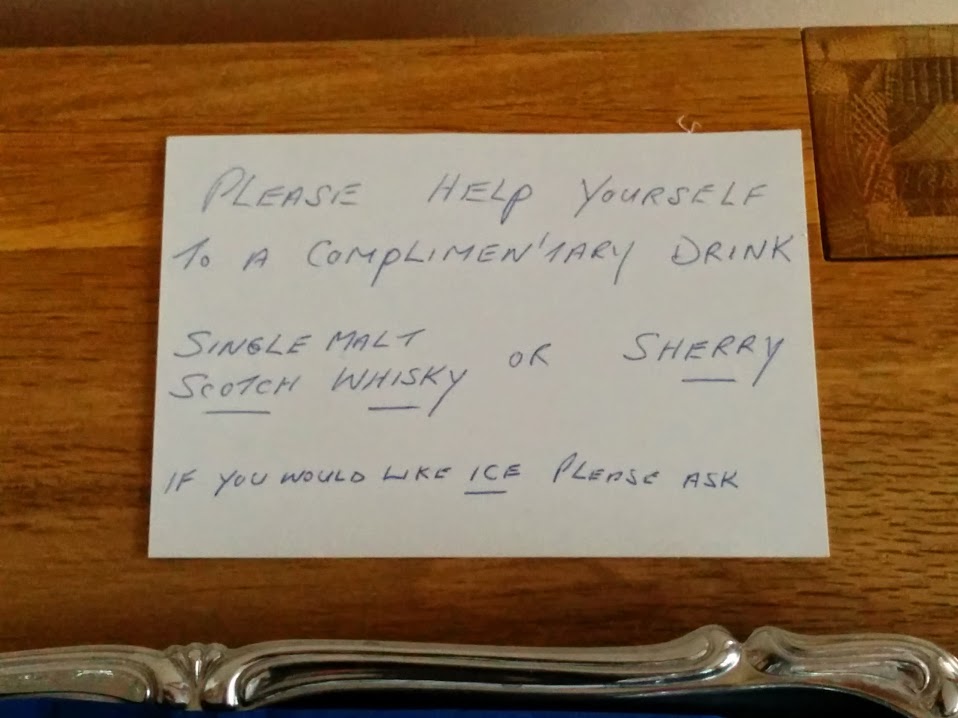 PLEASE HELP YOURSELF
TO A COMPLIMEN'TARY DRINK
SINGLE MALT
SCOTCH WHISKY OR SHERRY
IF YOU WOULD LIKE ICE PLEASE ASK